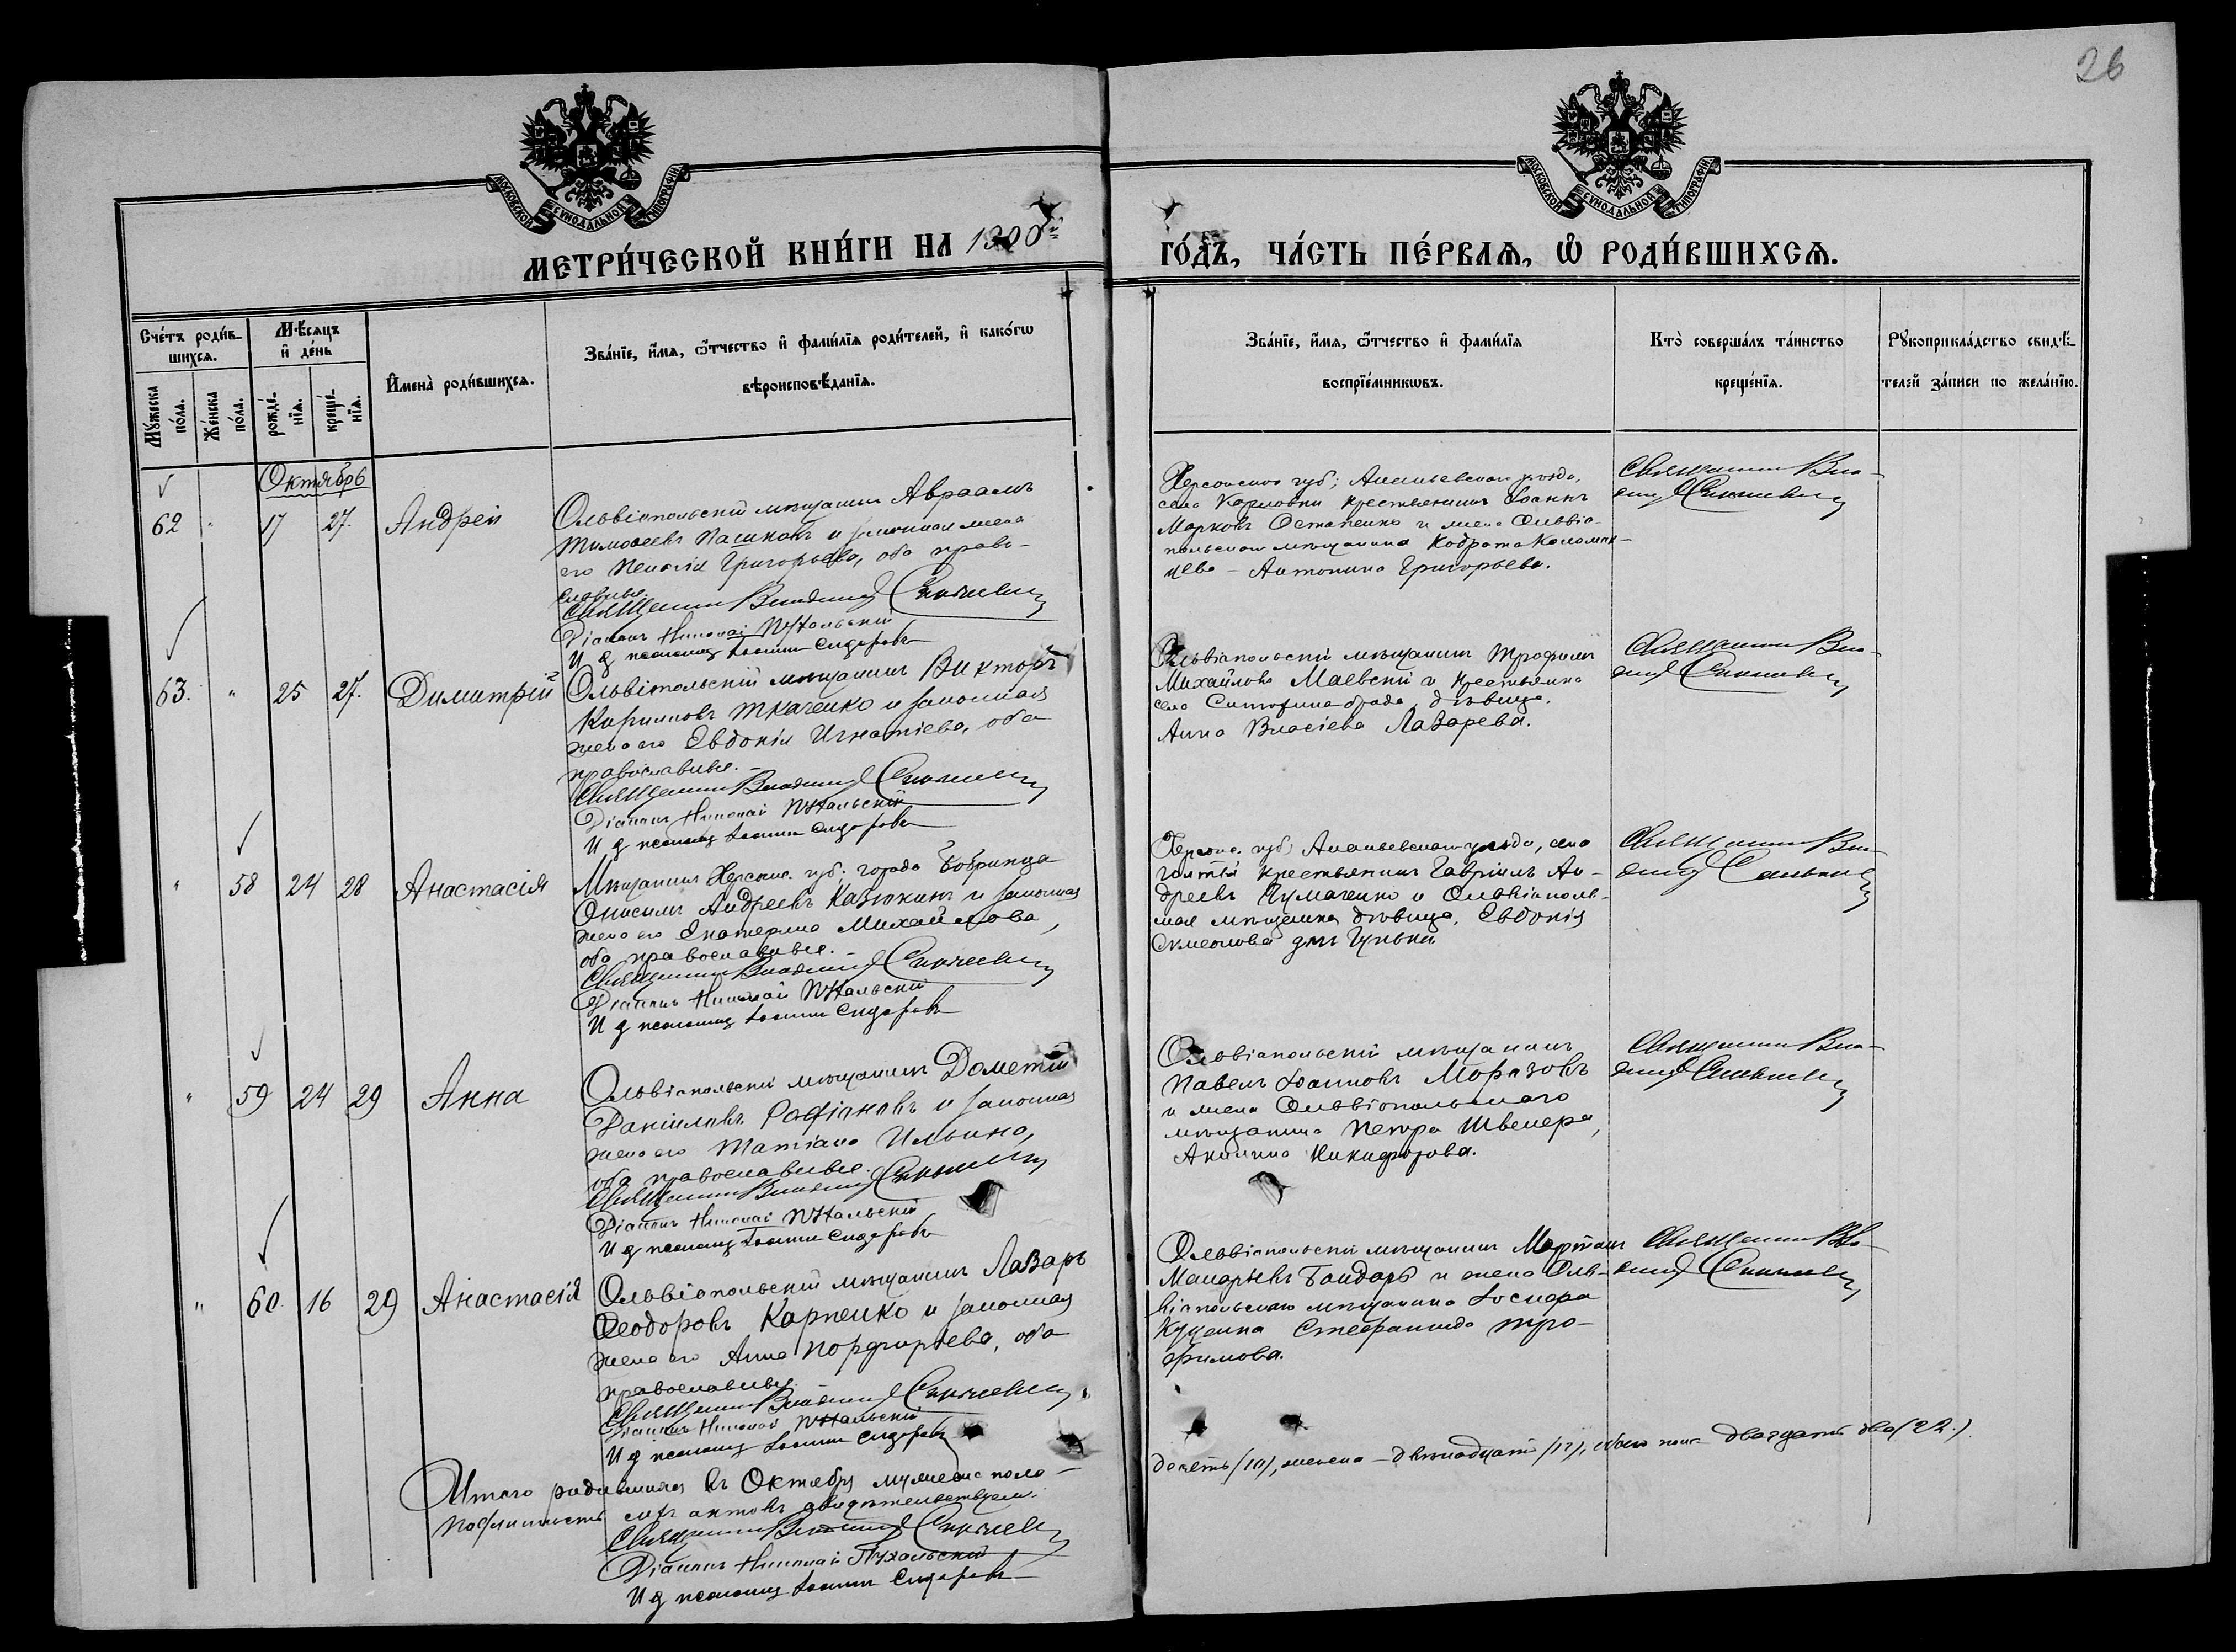 26
МОСКОВСКОЙ СѴНОДАЛЬНОЙ ТИПОГРАФІИ
МОСКОВСКОЙ СѴНОДАЛЬНОЙ ТИПОГРАФІИ
МЕТРИ́ЧЕСКОЙ КНИ́ГИ НА 1900й
ГО́ДЪ, ЧА́СТЬ ПЕ́РВАѦ, Ѽ РОДИ́ВШИХСѦ.
Сче́тъ роди́в-
шихсѧ.
Мꙋ́жеска
по́ла.
Же́нска
по́ла.
Мѣ́сѧцъ
и҆ де́нь
рожде́-
нїѧ.
креще́-
нїѧ.
И҆мена̀ роди́вшихсѧ.
Зва́нїе, и҆́мѧ, ѻ҆́тчество и҆ фами́лїѧ роди́телей, и҆ како́гѡ
вѣроисповѣ́данїѧ.
Зва́нїе, и҆́мѧ, ѻ҆́тчество и҆ фами́лїѧ
воспрїе́мникѡвъ.
Кто̀ соверша́лъ та́инство
креще́нїѧ.
Рꙋкоприкла́дство свидѣ́-
телей за́писи по жела́нїю.
Октябрь
62 " 17 27. Андрей
Ольвіопольскій мѣщанинъ Авраамъ
Тимофеевъ Пашковъ и законная жена
его Пелагія Григорьева, оба право-
славные.
Священникъ Владимір
Діаконъ Николай Пухальскій
И д псаломщ Іоаннъ Сидоровъ
Херсонской губ; Ананьевскаго уѣзда,
села Карловки крестьянинъ Іоаннъ
Марковъ Остапенко и жена Ольвіо-
польскаго мѣщанина Кодрата Коломій-
цева - Антонина Григорьева.
Священникъ Вла-
димір
63. " 25 27. Димитрій
Ольвіопольскій мѣщанинъ Викторъ
Кирилловъ Ткаченко и законная
жена его Евдокія Игнатіева, оба
православные.
Священникъ Владимір
Діаконъ Николай Пухальскій
И д псаломщ Іоаннъ Сидоровъ
Ольвіопольскій мѣщанинъ Трофимъ
Михайловъ Маевскій и крестьянка
села дѣвица
Анна Власіева Лазарева.
Священникъ Вла-
димір
" 58 24 28 Анастасія
Мѣщанинъ Херсонс. губ; города Бобринца
Онисимъ Андреевъ Казюкинъ и законная
жена его Екатерина Михайлова,
оба православные.
Священникъ Владимір
Діаконъ Николай Пухальскій
И д псаломщ Іоаннъ Сидоровъ
Херсонс. губ; Ананьевскаго уѣзда, села
Голты крестьянинъ Гавріилъ Ан-
дреевъ Чумаченко и Ольвіополь-
ская мѣщанка дѣвица, Евдокія
Симеонова
Священникъ Вла-
димір
" 59 24 29 Анна
Ольвіопольскій мѣщанинъ Дометій
Даніиловъ и законная
жена его Татіана Ильина,
оба православные.
Священникъ Владимір
Діаконъ Николай Пухальскій
И д псаломщ Іоаннъ Сидоровъ
Ольвіопольскій мѣщанинъ
Павелъ Іоанновъ Морозовъ
и жена Ольвіопольскаго
мѣщанина Петра Швецера,
Акилина Никифорова.
Священникъ Вла-
димір
" 60. 16 29 Анастасія
Ольвіопольскій мѣщанинъ Лазарь
Ѳеодоровъ Карпенко и законная
жена его Анна Порфирьева, оба
православные.
Священникъ Владимір
Діаконъ Николай Пухальскій
И д псаломщ Іоаннъ Сидоровъ
Ольвіопольскій мѣщанинъ
Макарьевъ Бондарь и жена Оль-
віопольскаго мѣщанина
Куценка Стефанида Тро-
фимова.
Священникъ Вла-
димір
Итого родившихся въ Октябрѣ мужеска пола -
десять (10), женска - двѣнадцать (12), обоего пола двадцать два (22.)
актовъ свидѣтельствуемъ:
Священникъ Владимір
Діаконъ Николай Пухальскій
И д псаломщ Іоаннъ Сидоровъ